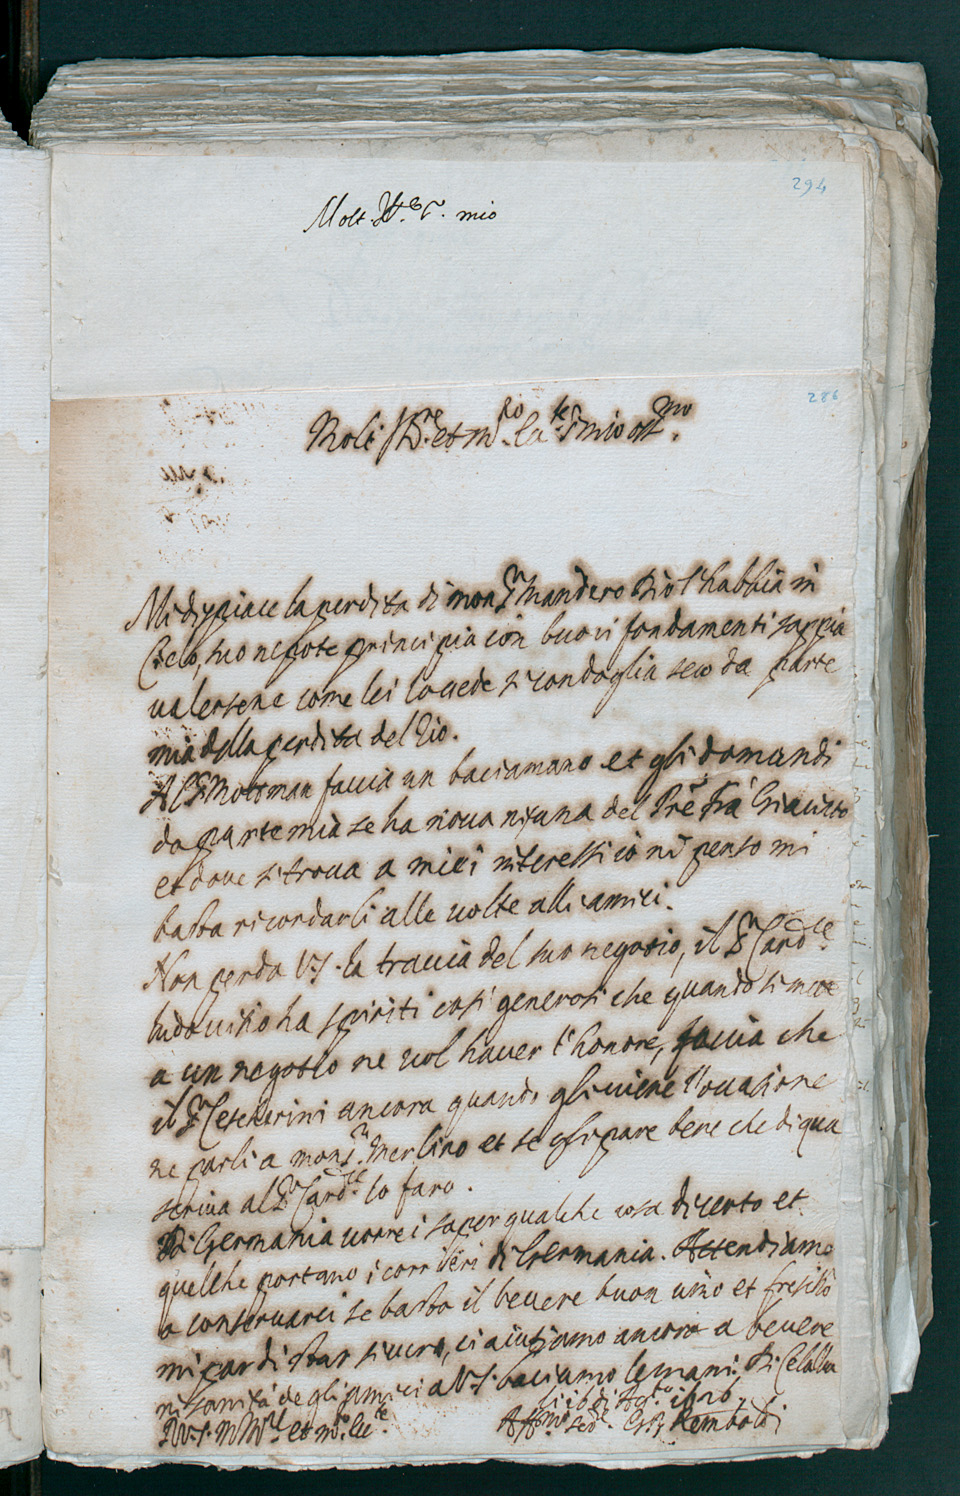 294
Molt. Ill.re S.r mio
286
Molt. Ill.re et m.to la S.r mio oss.mo
Mi dispiace la perdita di mons.r Mandero Dio l'habbia in
Cielo, suo nepote principia con buoni fondamenti sappia
valersene come lei lo vede si condoglia seco da parte
mia della perdita del Zio.
Al S.r Motman faccia un baciamano et gli domandi
da parte mia se ha nova nisuna del Pre Frà Giacinto
et dove si trova a miei interessi io nō penso mi
basta ricordarli alle volte alli amici.
Non perda V.S. la traccia del suo negotio, il S.r Card.le
ludovisio ha spiriti cosi generosi che quando si mette
a un negotio ne vol haver l'honore, faccia che
il S.r ancora quando gli viene l'occasione
ne parli a mons.r Merlino et se gli pare bene che di qua
scriva al S.r Card.le lo faro.
Di Germania vorrei saper qualche cosa di certo et
quelche portano i corrieri di Germania. Attendiamo
a conservarci se basta il bevere buon vino et fresco
mi par di star sicuro, ci aiutiamo ancora a bevere
in sanità degli amici a V.S. baciamo le mani. Di
li di Ag.to
D. V.S. M. Ill.re et m.to
Aff.mo ser.re Rembaldi